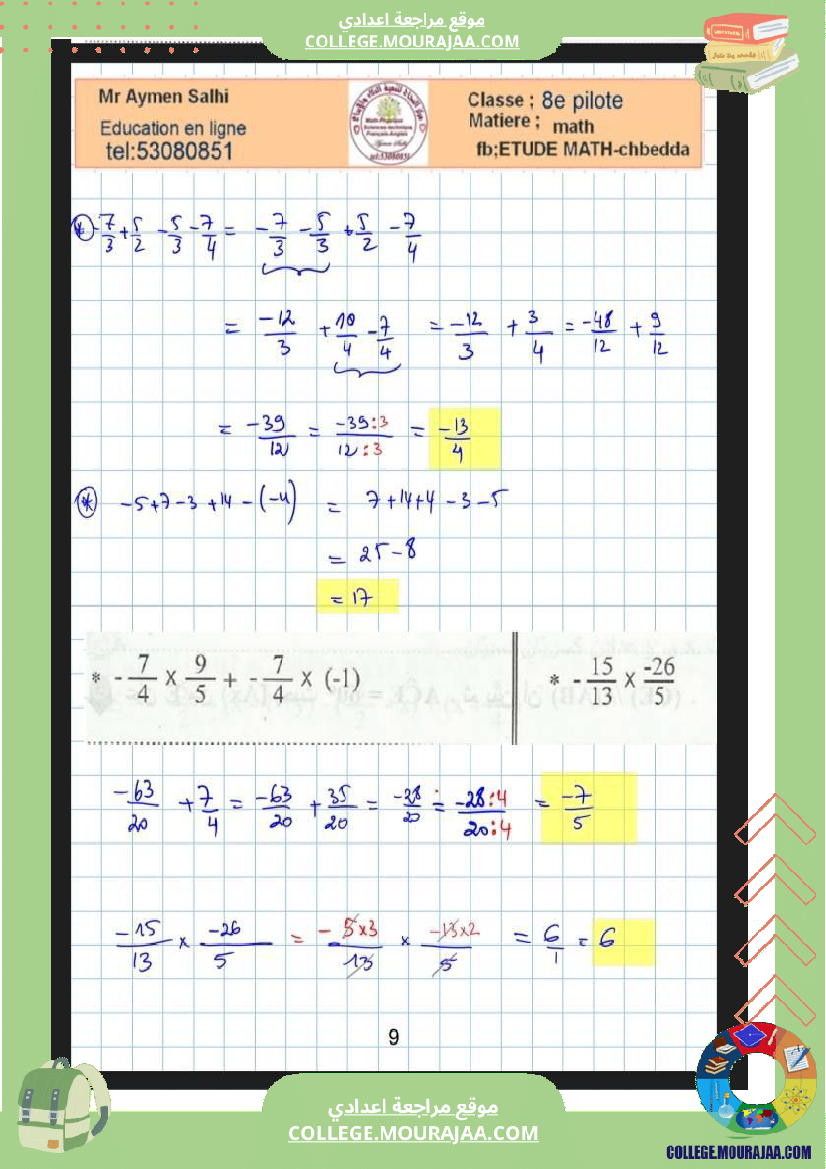 موقع مراجعة اعدادي
COLLEGE.MOURAJAA.COM
Mr Aymen Salhi
Education en ligne
tel:53080851
Classe ; 8e pilote
Matiere ; math
fb;ETUDE MATH-chbedda
* -7/3 + 5/2 - 5/3 - 7/4 = -7/3 - 5/3 + 5/2 - 7/4
= -12/3 + 10/4 - 7/4 = -12/3 + 3/4 = -48/12 + 9/12
= -39/12 = -39:3/12:3 = -13/4
* -5+7-3+14-(-4) = 7+14+4-3-5
= 25-8
= 17
* - 7/4 x 9/5 + - 7/4 x (-1)
* - 15/13 x -26/5
-63/20 + 7/4 = -63/20 + 35/20 = -28/20 = -28:4/20:4 = -7/5
-15/13 x -26/5 = - 5x3/13 x -13x2/5 = 6/1 = 6
9
موقع مراجعة اعدادي
COLLEGE.MOURAJAA.COM
COLLEGE.MOURAJAA.COM